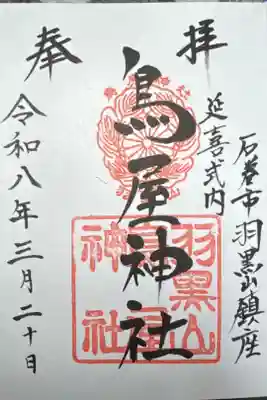 奉拝
石巻市羽黒山鎮座
延喜式内
鳥屋神社
羽黒山
神社
令和八年三月二十日